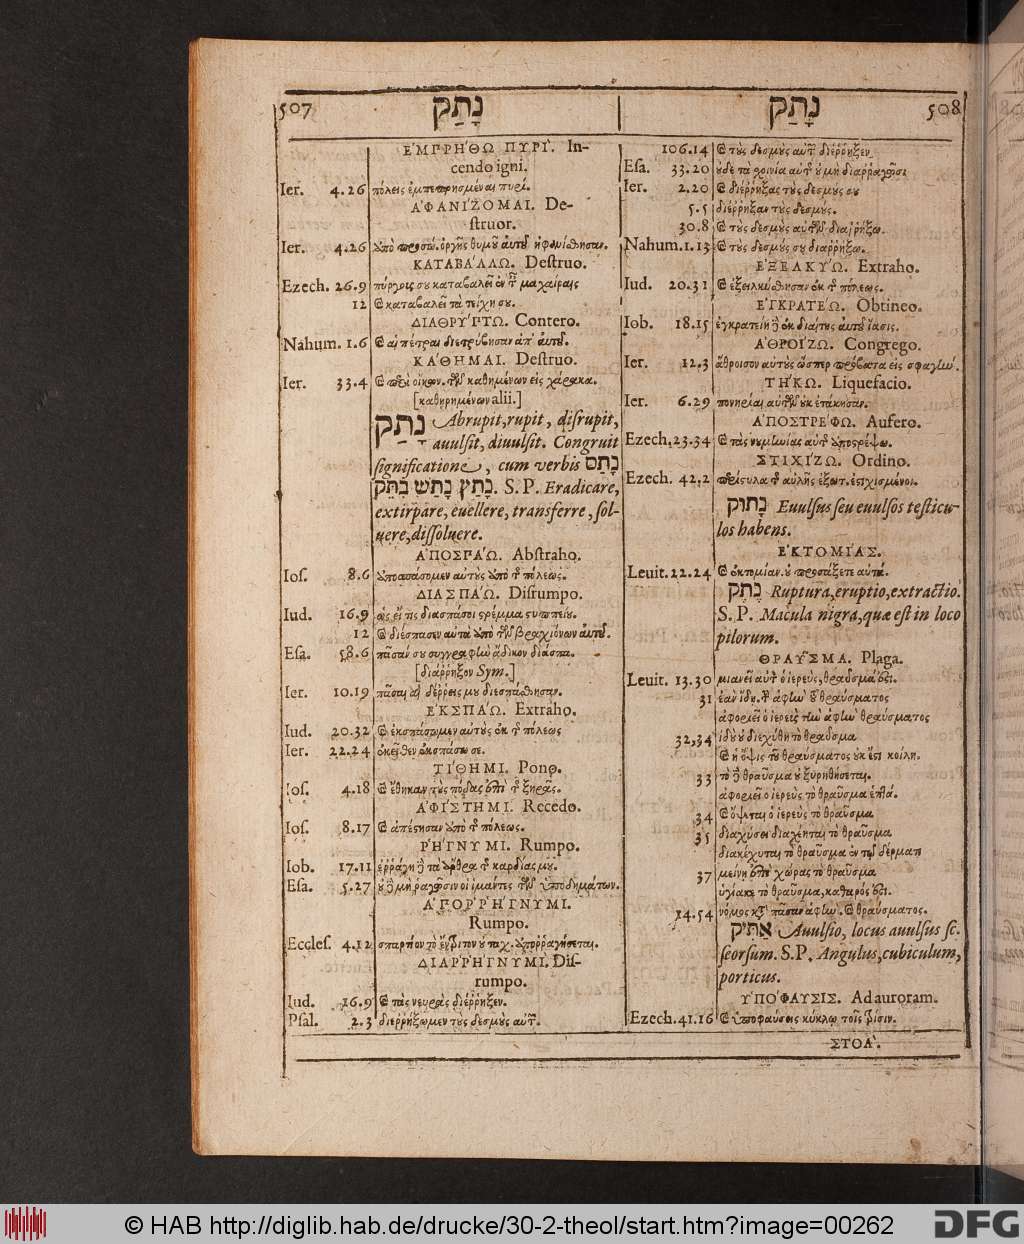 507 נָתַק
נָתַק 508
ἘΜΠΡΉΘΩ ΠΥΡΊ. In-
cendo igni.
Ier. 4.26 πόλεις ἐμπεπρησμέναι πυρί.
ἈΦΑΝΊΖΟΜΑΙ. De-
struor.
Ier. 4.26 ὑπὸ προσώ. ὀργῆς θυμοῦ αὐτοῦ ἠφανίσθησαν.
ΚΑΤΑΒΆΛΛΩ. Destruo.
Ezech. 26.9 πύργους σου καταβαλεῖ ἐν ταῖς μαχαίραις
12 καὶ καταβαλεῖ τὰ τείχη σου.
ΔΙΑΘΡΎΠΤΩ. Contero.
Nahum. 1.6 καὶ αἱ πέτραι διετρύβησαν ἀπ' αὐτοῦ.
ΚΆΘΗΜΑΙ. Destruo.
Ier. 33.4 καὶ περὶ οἴκων. τῶν καθημένων εἰς χάρακα.
[καθηρημένων alii.]
נָתַק Abrupit, rupit, disrupit,
auulsit, diuulsit. Congruit
significatione, cum verbis נָתַם
נָתַץ נָתַשׁ בָּתַק. S.P. Eradicare,
extirpare, euellere, transferre, sol-
uere, dissoluere.
ἈΠΟΣΠΆΩ. Abstraho.
Ios. 8.6 ἀποσπάσομεν αὐτοὺς ἀπὸ τῆς πόλεως.
ΔΙΑΣΠΆΩ. Disrumpo.
Iud. 16.9 ὡς εἴ τις διασπάσοι στρέμμα στυππείου.
12 καὶ διέσπασεν αὐτὰ ἀπὸ τῶν βραχιόνων αὐτοῦ.
Esa. 58.6 πᾶσαν συγγραφὴν ἄδικον διάσπα.
[διάρρηξον Sym.]
Ier. 10.19 πᾶσαι αἱ δέρρεις μου διεσπάσθησαν.
ἘΚΣΠΆΩ. Extraho.
Iud. 20.32 καὶ ἐκσπάσωμεν αὐτοὺς ἐκ τῆς πόλεως
Ier. 22.24 ἐκεῖθεν ἐκσπάσω σε.
ΤΊΘΗΜΙ. Pono.
Ios. 4.18 καὶ ἔθηκαν τοὺς πόδας ἐπὶ τῆς ξηρᾶς.
ἈΦΊΣΤΗΜΙ. Recedo.
Ios. 8.17 καὶ ἀπέστησαν ἀπὸ τῆς πόλεως.
ῬΉΓΝΥΜΙ. Rumpo.
Iob. 17.11 ἐρράγη δὲ τὰ ἄρθρα τῆς καρδίας μου.
Esa. 5.27 οὐδὲ μὴ ῥαγῶσιν οἱ ἱμάντες τῶν ὑποδημάτων.
ἈΠΟΡΡΉΓΝΥΜΙ.
Rumpo.
Eccles. 4.12 σπαρτίον τὸ ἔντριτον οὐ ταχ. ἀπορραγήσεται.
ΔΙΑΡΡΉΓΝΥΜΙ. Dis-
rumpo.
Iud. 16.9 καὶ τὰς νευρὰς διέρρηξεν.
Psal. 2.3 διαρρήξωμεν τοὺς δεσμοὺς αὐτῶν.
106.14 καὶ τοὺς δεσμοὺς αὐτῶν διέρρηξεν
Esa. 33.20 οὐδὲ τὰ σχοινία αὐτῆς οὐ μὴ διαρραγῶσι
Ier. 2.20 καὶ διέρρηξας τοὺς δεσμούς σου
5.5 διέρρηξαν τοὺς δεσμούς.
30.8 καὶ τοὺς δεσμοὺς αὐτῶν διαρρήξω.
Nahum. 1.13 καὶ τοὺς δεσμούς σου διαρρήξω.
ἘΞΕΛΚΎΩ. Extraho.
Iud. 20.31 καὶ ἐξειλκύσθησαν ἐκ τῆς πόλεως.
ἘΓΚΡΑΤΈΩ. Obtineo.
Iob. 18.15 ἐγκρατείη δὲ ἐκ διαίτης αὐτοῦ ἴασις.
ἈΘΡΟΊΖΩ. Congrego.
Ier. 12.3 ἄθροισον αὐτοὺς ὥσπερ πρόβατα εἰς σφαγήν.
ΤΉΚΩ. Liquefacio.
Ier. 6.29 πονηρίαι αὐτῶν οὐκ ἐτάκησαν.
ἈΠΟΣΤΡΈΦΩ. Aufero.
Ezech. 23.34 καὶ τὰς νουμηνίας αὐτῆς ἀποστρέψω.
ΣΤΙΧΊΖΩ. Ordino.
Ezech. 42.2 περίστυλα τῆς αὐλῆς ἐξωτ. ἐστιχισμένοι.
נָתוּק Euulsus seu euulsos testicu-
los habens.
ἘΚΤΟΜΊΑΣ.
Leuit. 22.24 καὶ ἐκτομίαν. οὐ προσάξετε αὐτά.
נֶתֶק Ruptura, eruptio, extractio.
S.P. Macula nigra, quae est in loco
pilorum.
ΘΡΑῦΣΜΑ. Plaga.
Leuit. 13.30 μιανεῖ αὐτὸν ὁ ἱερεύς, θραῦσμά ἐστι.
31 ἐὰν ἴδῃ. τὴν ἁφὴν τοῦ θραύσματος
ἀφοριεῖ ὁ ἱερεὺς τὴν ἁφὴν θραύσματος
32,34 ἰδοὺ οὐ διεχύθη τὸ θραῦσμα
καὶ ἡ ὄψις τοῦ θραύσματος οὐκ ἔστι κοίλη.
33 τὸ δὲ θραῦσμα οὐ ξυρηθήσεται.
ἀφοριεῖ ὁ ἱερεὺς τὸ θραῦσμα ἑπτά.
34 καὶ ὄψεται ὁ ἱερεὺς τὸ θραῦσμα
35 διαχύσει διαχέηται τὸ θραῦσμα
διακέχυται τὸ θραῦσμα ἐν τῷ δέρματι
37 μείνῃ ἐπὶ χώρας τὸ θραῦσμα
ὑγίακε τὸ θραῦσμα, καθαρός ἐστι.
14.54 νόμος κατὰ πᾶσαν ἁφὴν. καὶ θραύσματος.
אַתִּיק Auulsio, locus auulsus se-
seorsum. S.P. Angulus, cubiculum,
porticus.
ὙΠΟΦΑΥΣΙΣ. Ad auroram.
Ezech. 41.16 καὶ ὑποφαύσεις κύκλῳ τοῖς τρίσιν.
ΣΤΟΆ.
© HAB http://diglib.hab.de/drucke/30-2-theol/start.htm?image=00262
DFG